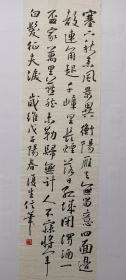 塞下秋来風景異衡陽雁去無留意四面邊
聲連角起千嶂里長煙落日孤城閉濁酒一
盃家萬里燕然未勒歸無計人不寐將軍
白髮征夫淚 歲維戊子陽春優生信筆